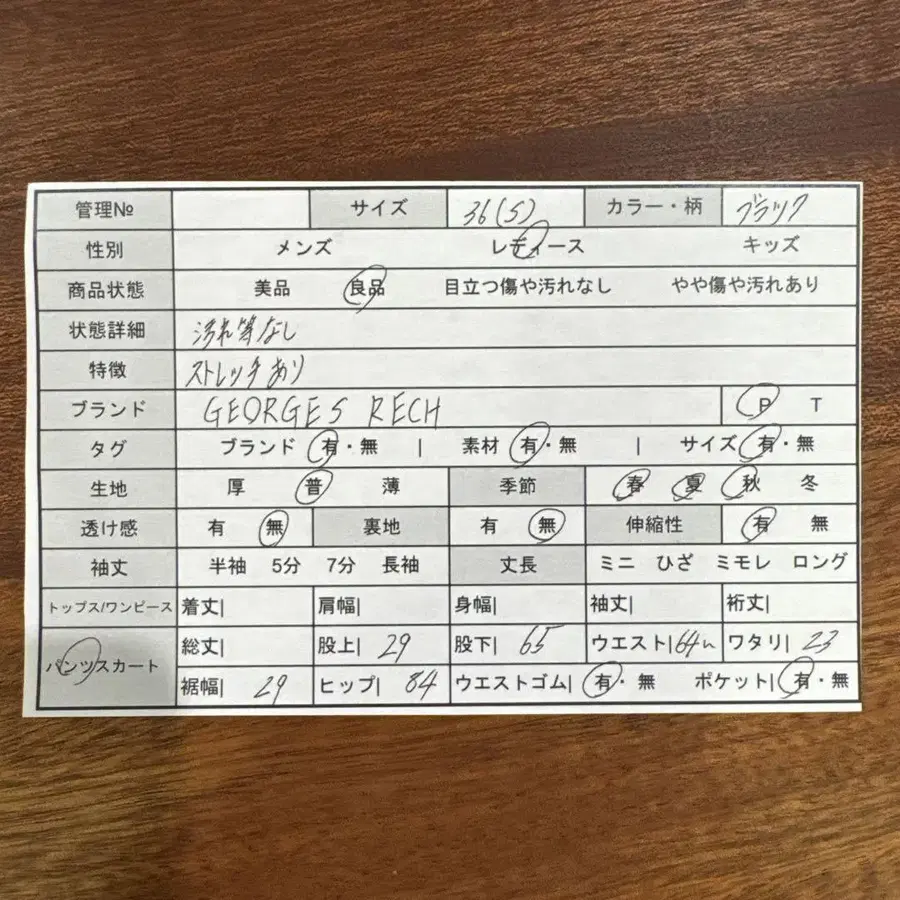 管理№ サイズ 36(S) カラー・柄 ブラック
性別 メンズ レディース キッズ
商品状態 美品 良品 目立つ傷や汚れなし やや傷や汚れあり
状態詳細 汚れ等なし
特徴 ストレッチあり
ブランド GEORGES RECH P T
タグ ブランド 有・無 | 素材 有・無 | サイズ 有・無
生地 厚 普 薄 季節 春 夏 秋 冬
透け感 有 無 裏地 有 無 伸縮性 有 無
袖丈 半袖 5分 7分 長袖 丈長 ミニ ひざ ミモレ ロング
トップス/ワンピース 着丈| 肩幅| 身幅| 袖丈| 裄丈|
パンツスカート 総丈| 股上| 29 股下| 65 ウエスト|64~ ワタリ| 23
裾幅| 29 ヒップ| 84 ウエストゴム| 有・無 ポケット| 有・無